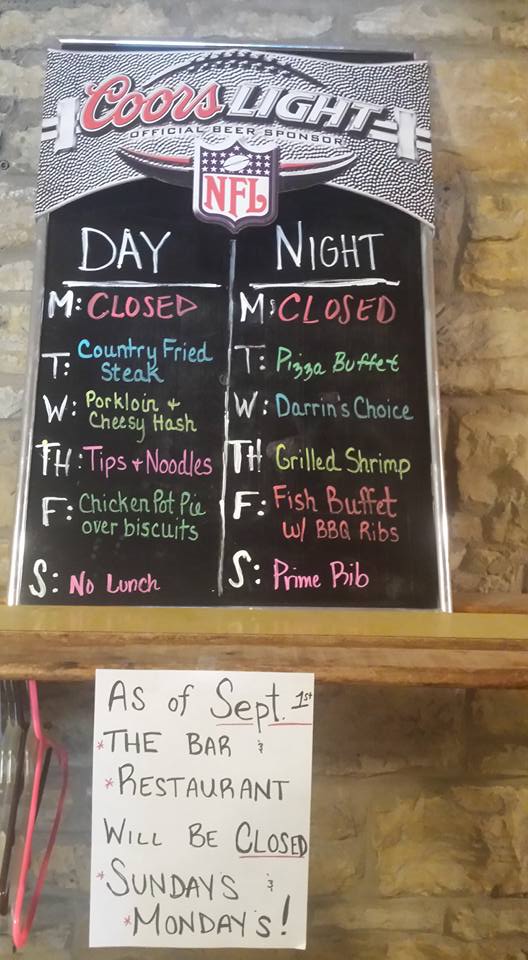 Coors LIGHT
OFFICIAL BEER SPONSOR
NFL
DAY
M: CLOSED
T: Country Fried
Steak
W: Porkloin +
Cheesy Hash
TH: Tips + Noodles
F: Chicken Pot Pie
over biscuits
S: No Lunch
NIGHT
M: CLOSED
T: Pizza Buffet
W: Darrin's Choice
TH Grilled Shrimp
F: Fish Buffet
w/ BBQ Ribs
S: Prime Rib
As of Sept. 1st
*THE BAR &
*RESTAURANT
WILL BE CLOSED
*SUNDAYS &
*MONDAY'S!